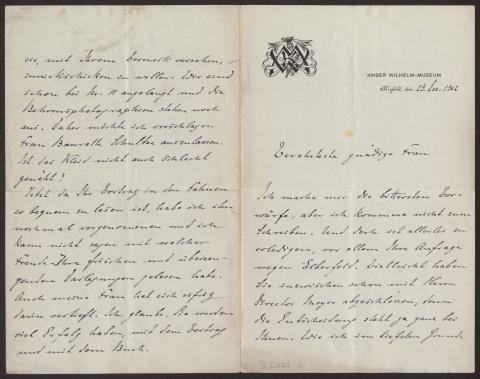 KAISER WILHELM-MUSEUM
Crefeld, den 23. Dez. 1902
Verehrteste gnädige Frau
Ich mache mir die bittersten Vor-
würfe, aber ich komme nicht zum
Schreiben. Und doch ist allerlei zu
erledigen, vor allem Ihre Anfrage
wegen Elberfeld. Vielleicht haben
Sie inzwischen schon mit Herrn
Director Meyer abgeschlossen, denn
die Entscheidung steht ja ganz bei
Ihnen. Wie ich im tiefsten Grund
sie, mit Ihrem Vermerk versehen,
zurückschicken zu wollen. Wir sind
schon bei Nr. 11 angelangt und die
Behrensphotographien stehen noch
aus. Daher möchte ich vorschlagen
Frau Baurath Schultze auszulassen.
Ist das Kleid nicht auch schlecht
genäht?
Jetzt da Ihr Vortrag in den Fahnen
so bequem zu lesen ist, habe ich ihn
nochmal vorgenommen und ich
kann nicht sagen mit welcher
Freude Ihre frischen und überzeu-
genden Darlegungen gelesen habe.
Auch meine Frau hat sich eifrig
darin vertieft. Ich glaube, Sie werden
viel Erfolg haben, mit dem Vortrag
und mit dem Buch.